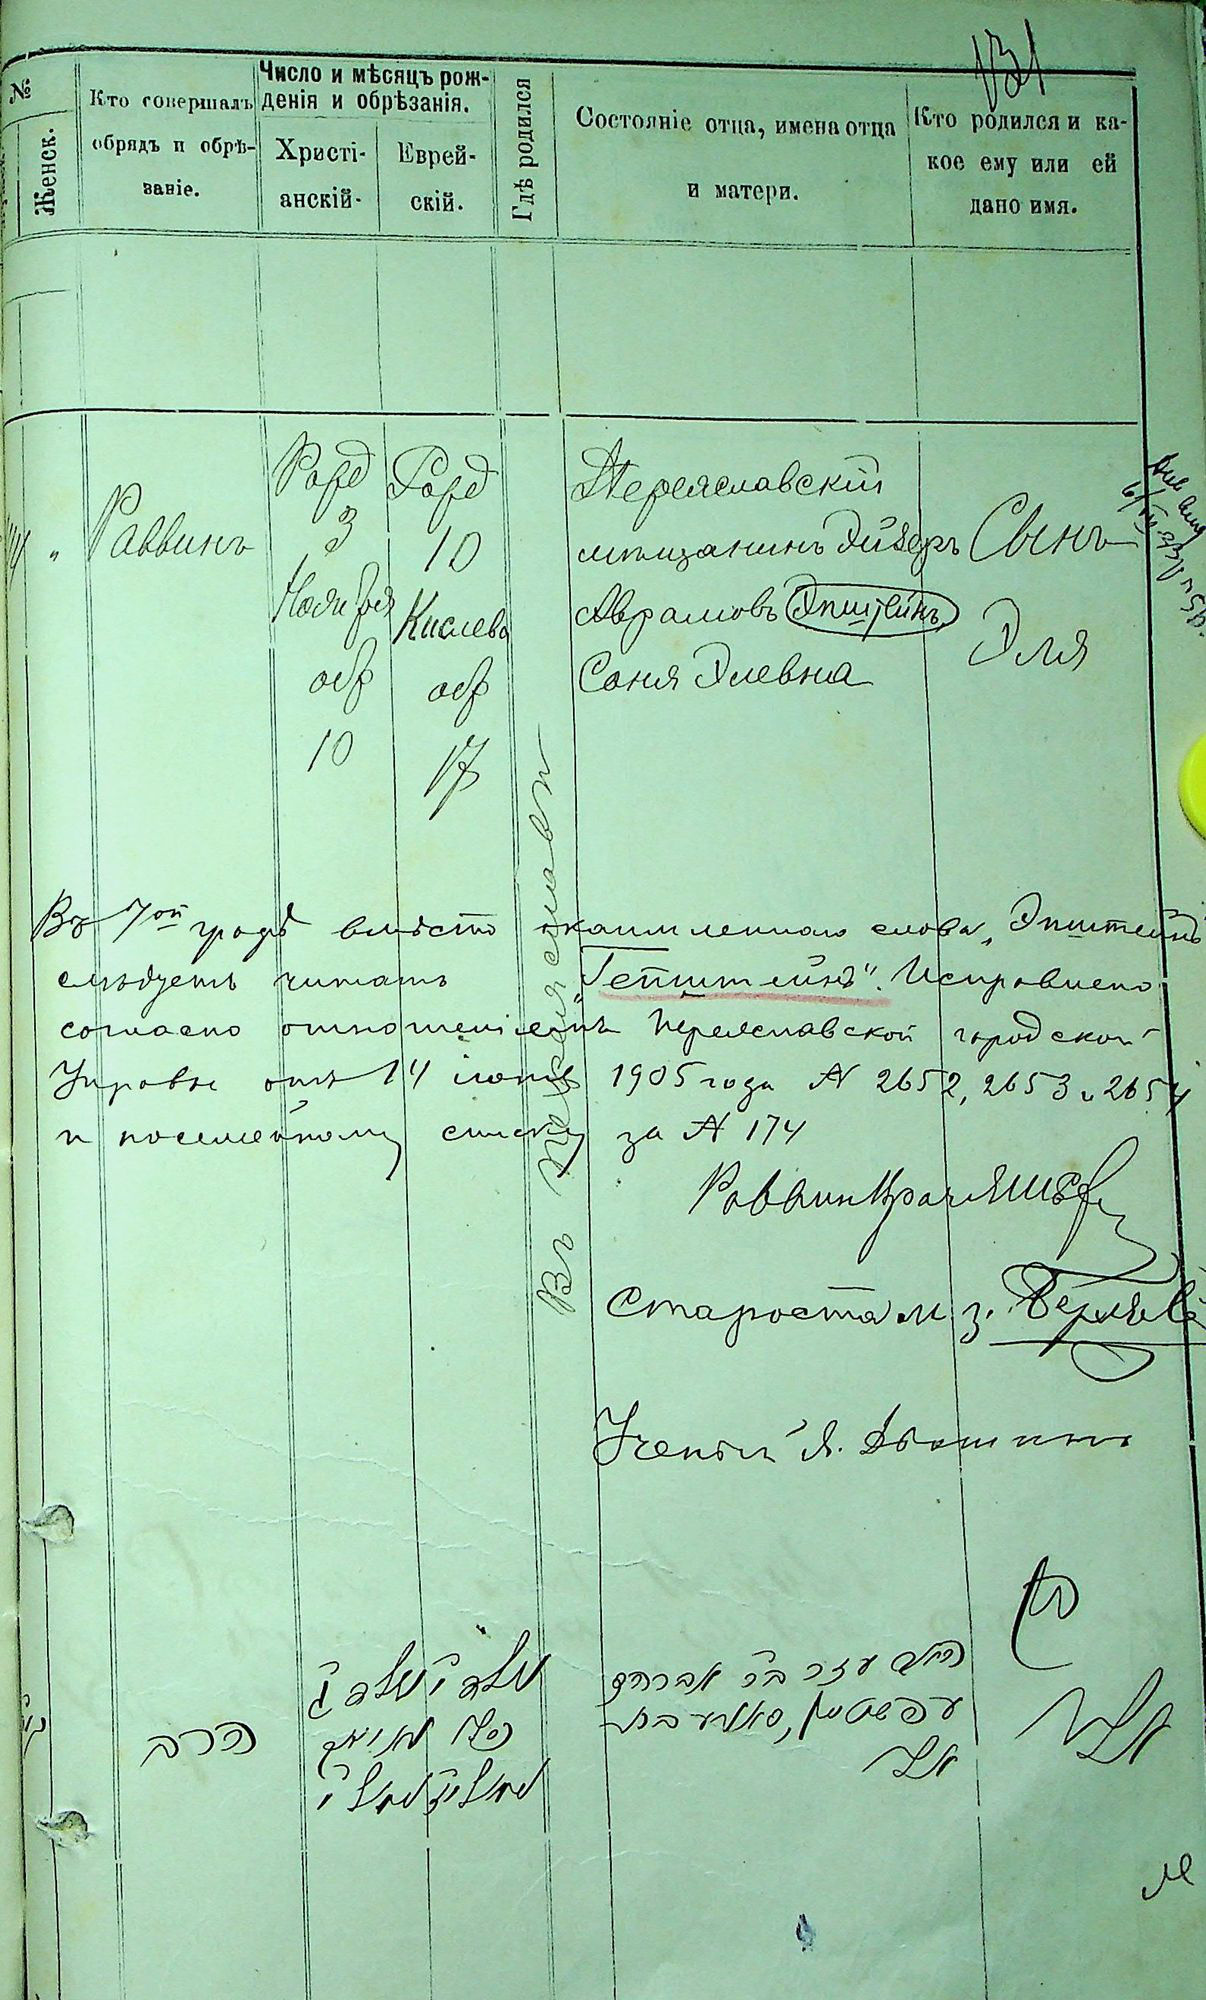 131
№
Женск.
Кто совершалъ
обрядъ и обрѣ-
заніе.
Число и мѣсяцъ рож-
денія и обрѣзанія.
Христі-
анскій.
Еврей-
скій.
Гдѣ родился
Состояніе отца, имена отца
и матери.
Кто родился и ка-
кое ему или ей
дано имя.
"
Раввинъ
Рожд
3
Ноября
обр
10
Рожд
10
Кислева
обр
17
Въ Переяславѣ
Переяславскій
мѣщанинъ Эйзеръ
Аврамовъ Эпштейнъ,
Соня Элевна
Сынъ
Эля
Въ 7ой графѣ вмѣсто окаймленнаго слова „Эпштейнъ"
слѣдуетъ читать „Гепштейнъ". Исправлено
согласно отношеніемъ Переяславской городской
Управы отъ 14 1905 года № 2652, 2653 и 2654
и посемейному списку за № 174
Раввинъ
Староста м. з.
Ученый Я.
הרב
עזר ב"ר אברהם
אלי
בן
אלי